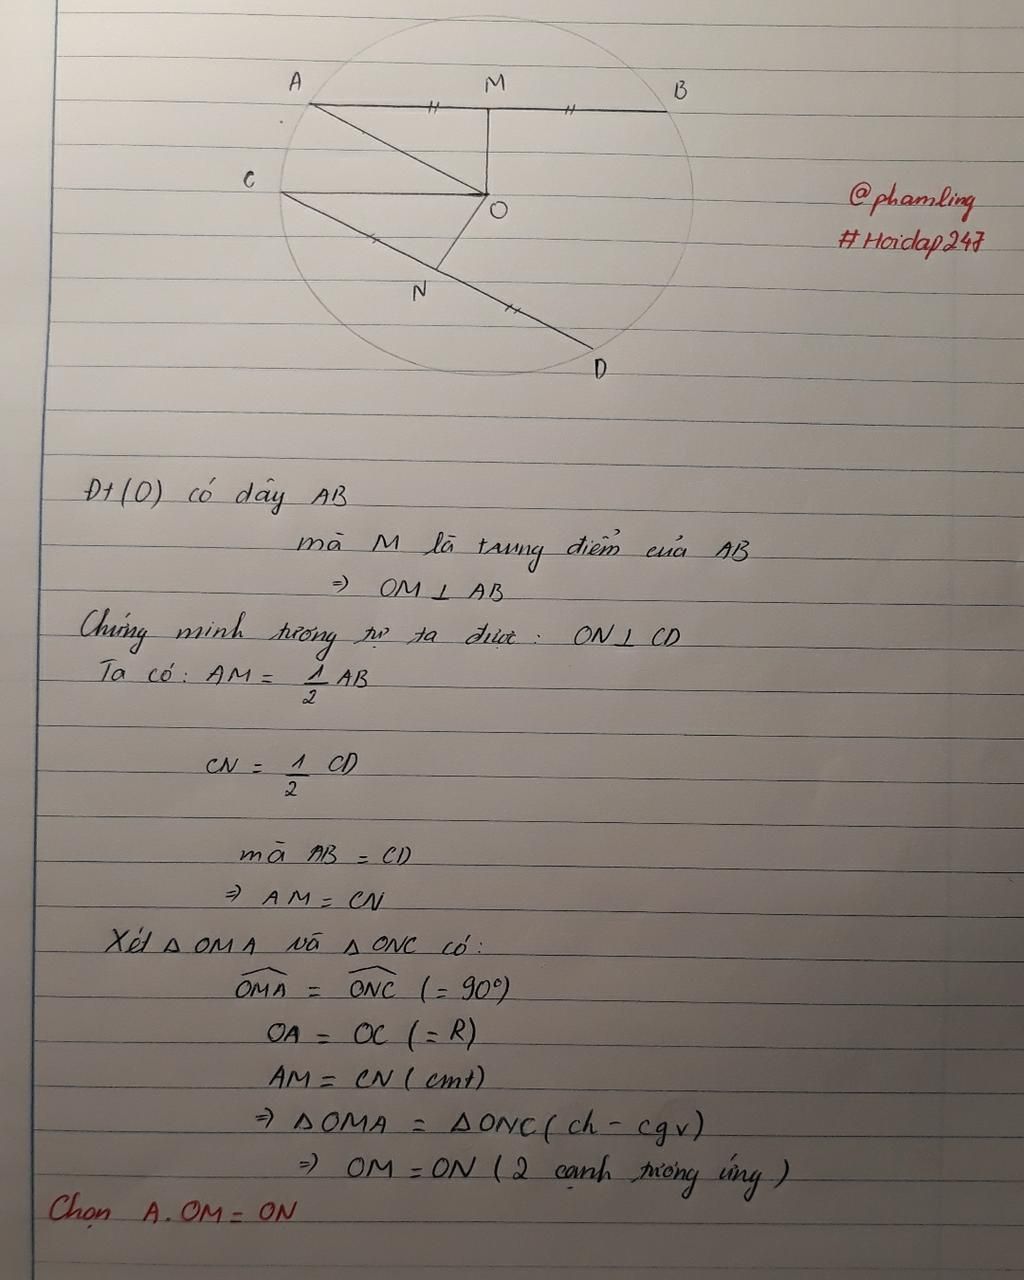 A M B
C
O
N
D
@phamling
#Hoidap247
Đt(O) có dây AB
mà M là trung điểm của AB
=> OM ⊥ AB
Chứng minh tương tự ta được: ON ⊥ CD
Ta có: AM = 1/2 AB
CN = 1/2 CD
mà AB = CD
=> AM = CN
Xét Δ OMA và Δ ONC có:
OMA = ONC (= 90°)
OA = OC (= R)
AM = CN (cmt)
=> Δ OMA = Δ ONC (ch - cgv)
=> OM = ON (2 cạnh tương ứng)
Chọn A. OM = ON